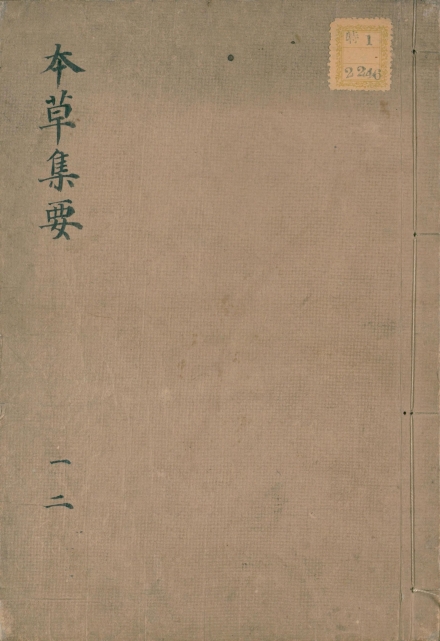 本草集要
一二
1
2246